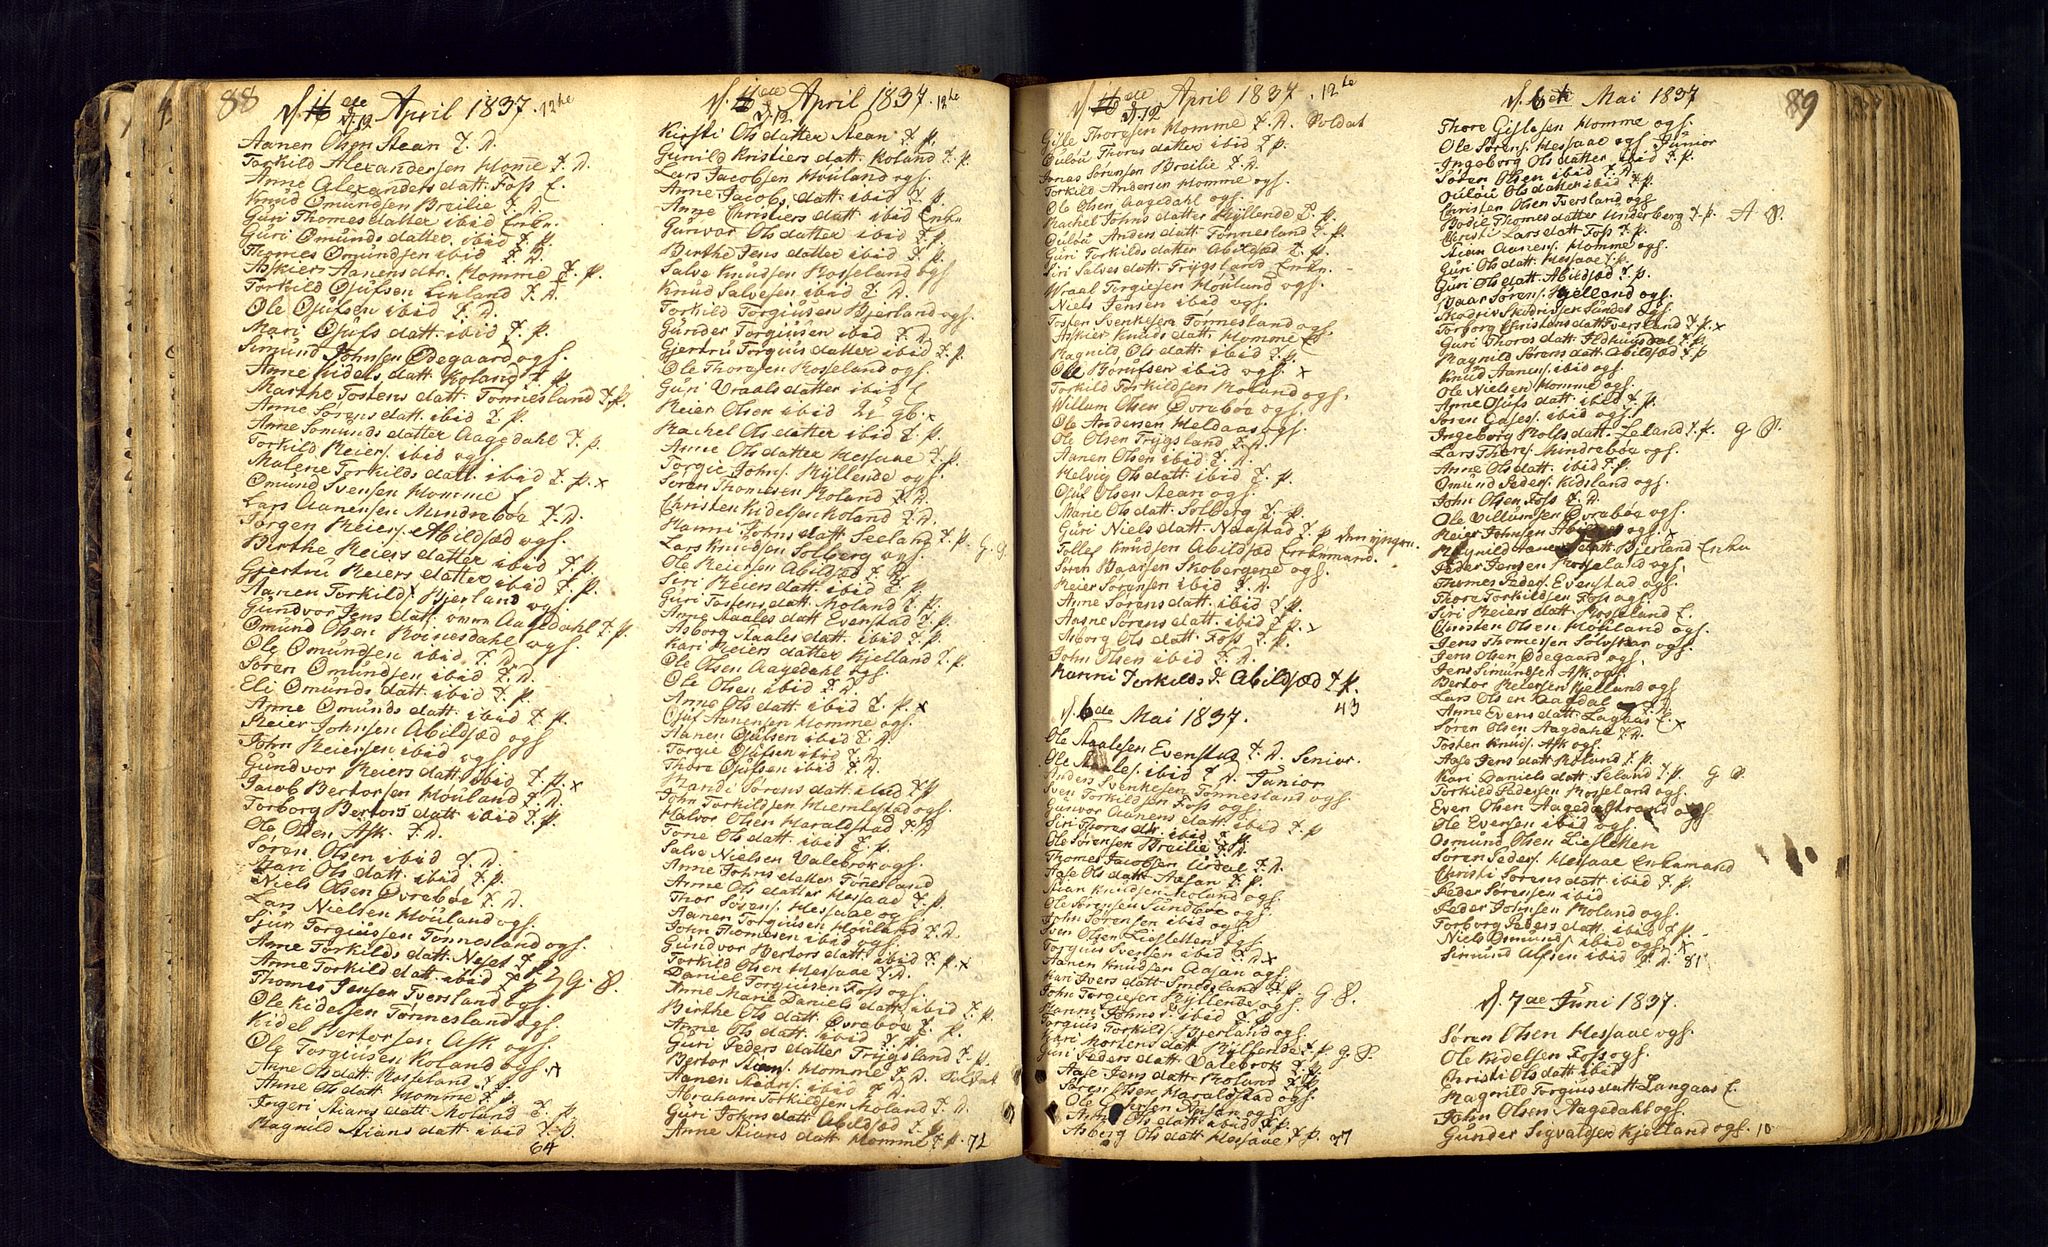 88
April 1837. 12te
Aanen Olsen Stean T. D.
Torkild Alexandersen Home T. D.
Anne Alexanders datt. Foss E.
Knud Omundsen Breilie T. D.
Guri Thomes datter ibid Enke.
Guri Omunds datter ibid T. P.
Thomes Omundsen ibid T. D.
Askier Aanens dtr. Homme T. P.
Torkild Ojufsen Linland T. D.
Ole Ojufsen ibid T. D.
Mari Ojufs datt. ibid T. P.
Simund Johnsen Ødegaard ogs.
Anne Kidels datt. Roland T. P.
Marthe Tostens datt. Tønnesland T. P.
Anne Sørens datt. ibid T. P.
Anne Somunds datter Aagedahl T. P.
Torkild Reiers. ibid ogs.
Malene Torkilds datt. ibid T. P. x
Omund Svensen Homme E.
Lars Aanensen Mundrebøe T. D.
Jørgen Reiers. Abildsæd ogs.
Birthe Reiers datter ibid T. P.
Giertru Reiers datter ibid T. P.
Aanen Torkilds. Bjerland ogs.
Gundvor Jens datt. Aagedahl T. P.
Omund Olsen Roinesdahl ogs.
Ole Omundsen ibid T. D.
Søren Omundsen ibid T. D.
Eli Omunds datt. ibid T. P.
Anne Omunds datt. ibid T. P.
Reier Johnsen Abildsæd ogs
John Reiersen ibid ogs.
Gundvor Reiers datt. ibid T. P. x
Jacob Bertorsen Houland T. D.
Torborg Bertors datt ibid T. P.
Ole Olsen Ask T. D.
Søren Olsen ibid T. D.
Mari Ols datt. ibid T. P.
Niels Olsen Øvrebøe T. D.
Lars Nielsen Houland ogs.
Siur Torgiussen Tønnesland ogs
Anne Torkilds datt. Neset T. P.
Anne Torkild datt. ibid T. P. G. S.
Thomes Jensen Tversland ogs.
Ole Kidelsen Tønnesland ogs.
Kidel Bertorsen Ask ogs.
Ole Torgiusen Roland ogs.
Anne Ols datt. Rosseland T. P. x
Anne Ols datt. Homme T. P.
Ingeri Stians datt. Moland T. P.
Magnild Stians datt. ibid T. P.
64
April 1837. 12te
Kirsti Ols datter Stean T. P.
Gunild Kristiers datt. Roland T. P.
Lars Jacobsen Houland ogs.
Anne Jacobs datt. ibid T. P.
Anne Christiers datt ibid Enke
Gunvor Ols datter ibid T. P.
Birthe Jens datter ibid T. P.
Salve Knudsen Rosseland ogs
Knud Salvesen ibid T. D.
Torkild Torgiusen Bjerland ogs.
Gunder Torgiusen ibid T. D.
Gjertru Torgius datter ibid T. P.
Ole Thoresen Rosseland ogs.
Guri Vraals datter ibid E
Reier Olsen ibid
Rachel Ols datter ibid T. P.
Anne Ols datter Messaae T. P.
Torgie Johns. Kyllende ogs.
Søren Thomesen Roland T. D.
Christen Kidelsen Roland T. D.
Hanne Johns datt Seeland T. P. G. S.
Lars Knudsen Solberg ogs.
Ole Reiersen Abildsæd T. D.
Siri Reiers datt. ibid T. P.
Guri Tostens datt. Moland T. P.
Anne Staales datt. Evenstad T. P.
Asborg Staales datt. ibid T. P.
Kari Reiers datter Kjelland T. P.
Ole Olsen Aagedahl ogs.
Ole Olsen ibid T. D.
Anne Ols datt. ibid T. P. x
Ojuf Aanensen Homme ogs.
Aanen Ojufsen ibid T. D.
Torgie Ojufsen ibid T. D.
Thore Ojufsen ibid T. D.
Randi Sørens datt. ibid T. P
John Torkildsen Hiemlestad ogs.
Halvor Olsen Haraldstad T. D
Tone Ols datt. ibid T. P.
Salve Nielsen Valebrok ogs.
Anne Johns datter Tønesland
Anne Ols datter Messaae T. P.
Thor Sørens. Messaae ogs.
Aanen Torgiusen Houland T. D.
John Thomesen ibid ogs.
Gundvor Bertors datt. ibid T. P. x
Torkild Olsen Messaae T. D.
Daniel Torgiusen Foss ogs.
Anne Marie Daniels datt ibid T. P.
Birthe Ols datt. Øvrebøe T. P.
Anne Ols datt. ibid T. P.
Guri Peders datter Trygsland T. P.
Bertor Stians. Homme T. D. Soldat
Aanen Stians. ibid T. D.
Abraham Torkildsen Moland T. D.
Guri Johns datt. Abildsæd T. P.
Anne Stians datt. Homme T. P. 71
April 1837. 12te
Gisle Thoresen Homme T. D. Soldat
Oulou Thoras datter ibid T. P.
Jonas Sørensen Breilie T. D.
Torkild Andersen Homme ogs.
Ole Olsen Aagedahl ogs.
Rachel Johns datter Kyllende T. P.
Oulou Anders datt. Tønnesland T. P.
Guri Torkilds datter Abildsæd T. P.
Siri Salves datt. Trygsland Enke.
Wraal Torgiesen Houland ogs.
Niels Jensen ibid ogs.
Tosten Svenkesen Tønnesland ogs.
Askier Knuds datt. Homme E
Magnild Ols datt. ibid T. P.
Ole Børufsen ibid ogs. x
Torkild Torkildsen Moland ogs.
Willum Olsen Øvrebøe ogs.
Ole Andersen Heldaas ogs.
Ole Olsen Trygsland T. D.
Aanen Olsen ibid T. D.
Helvig Ols datt. ibid T. P.
Ojuf Olsen Stean ogs.
Marie Ols datt. Solberg T. P.
Guri Niels datt. Naastad T. P. den yngre.
Tollef Knudsen Abildsæd Enkemand.
Søren Baarsen Skobergene ogs.
Reier Sørensen ibid T. D.
Anne Sørens datt. ibid T. P.
Aasne Sørens datt. ibid T. P. x
Asborg Ols datt. Foss T. P.
John Olsen ibid T. D.
Hanni Torkilds D. Abildsæd T. P.
43
d. 6de Mai 1837.
Ole Staalesen Evenstad T. D. Senior.
Ole Staales. ibid T. D. Junior
Anders Svenkesen Tønnesland ogs.
Sven Torkildsen Foss ogs.
Gunvor Aanens datt. ibid T. P.
Siri Thores dtr. ibid T. P
Ole Sørensen Breilie T. D.
Thomes Jacobsen Urdal T. D.
Aase Ols datt. Aasan T. P.
Stian Knudsen Moland ogs.
Ole Sørensen Sundbøe ogs.
John Sørensen ibid ogs.
Sven Olsen Lieslethen ogs.
Torgius Svensen ibid T. D. x
Aanen Knudsen Aasan ogs.
Kari Ivers datt. Smedsland T. P. G. S.
John Torgiesen Kyllende ogs.
Hanni Johns d. ibid T. P.
Torgius Torkilds. Bjerland ogs.
Kari Mortens datt. Kyllende T. P. G. S.
Guri Peders datt. Valebrok T. P.
Aase Jens datt. Moland T. P.
Søren Olsen Haraldstad ogs.
Ole Olsen Aasan ogs.
Anne Ols datt. ibid T. P.
Asberg Ols datt. Messaae T. P. 77
89
d. 6te Mai 1837
Thore Gislesen Homme ogs.
Ole Sørens. Messaae ogs. Junior
Ingeborg Ols datter ibid T. P.
Søren Olsen ibid T. D.
Oulou Ols datter ibid T. P.
Christen Olsen Tversland ogs
Bodil Thomes datter Underberg T. P. A S.
Christi Lars datt. Foss T. P.
Stean Aanens. Homme ogs.
Guri Ols datt. Messaae T. P.
Guri Ols datt. Abildsæd T. P.
Baar Sørens. Kjelland ogs.
Skadriv Skadrivsen Sundet ogs.
Torborg Christens datt Tversland T. P. x
Guri Thores datt. Ildhuusdal T. P.
Magnild Sørens datt. Abildsæd T. P
Knud Aanens. ibid ogs.
Ole Nielsen Homme ogs.
Anne Olufs datt. ibid T. P.
Søren Gases. ibid ogs.
Ingeborg Rolfs datt. Leland T. P. G S.
Lars Thors. Mundrebøe ogs.
Anne Ols datt. ibid T. P.
Omund Peders. Kidsland ogs.
John Olsen Foss T. D.
Ole Villumsen Øvrebøe ogs.
Reier Johnsen Abildsæd ogs. x
Magnild Aanens datt. Bjerland Enke
Peder Jensen Rosseland ogs.
Thomes Peders. Evenstad ogs.
Thore Torkildsen Foss ogs.
Siri Reiers datt. Rosseland E.
Christen Olsen Houland ogs.
Jens Thomessen Sølvskar ogs.
Jens Olsen Ødegaard ogs.
Jens Simundsen Ask ogs.
Bertor Reiersen Kjelland ogs
Lars Olsen Aagdal
Anne Evens datt. Lagaas E. x
Søren Olsen Aagdahl T. D.
Tosten Knuds. Ask ogs.
Aase Jens datt. Moland T. P.
Kari Daniels datt. Seland T. P. G S.
Torkild Pedersen Rosseland ogs.
Even Olsen Aagedalstrand ogs
Ole Evensen ibid ogs.
Osmund Olsen Lieslethen
Søren Peders. Messaae Enkemand
Christi Sørens datt. ibid T. P.
Peder Sørensen ibid
Peder Johnsen Moland ogs.
Torborg Peders datt. ibid T. P.
Niels Osmunds. ibid ogs. x
Simund Alfsen ibid T. D. 81
d. 7de Juni 1837.
Søren Olsen Messaae ogs.
Ole Kidelsen Foss ogs.
Christi Ols datt. ibid
Magnild Torgius datt Langaas E
John Olsen Aagedahl ogs.
Gunder Sigvaldsen Kjelland ogs. 10